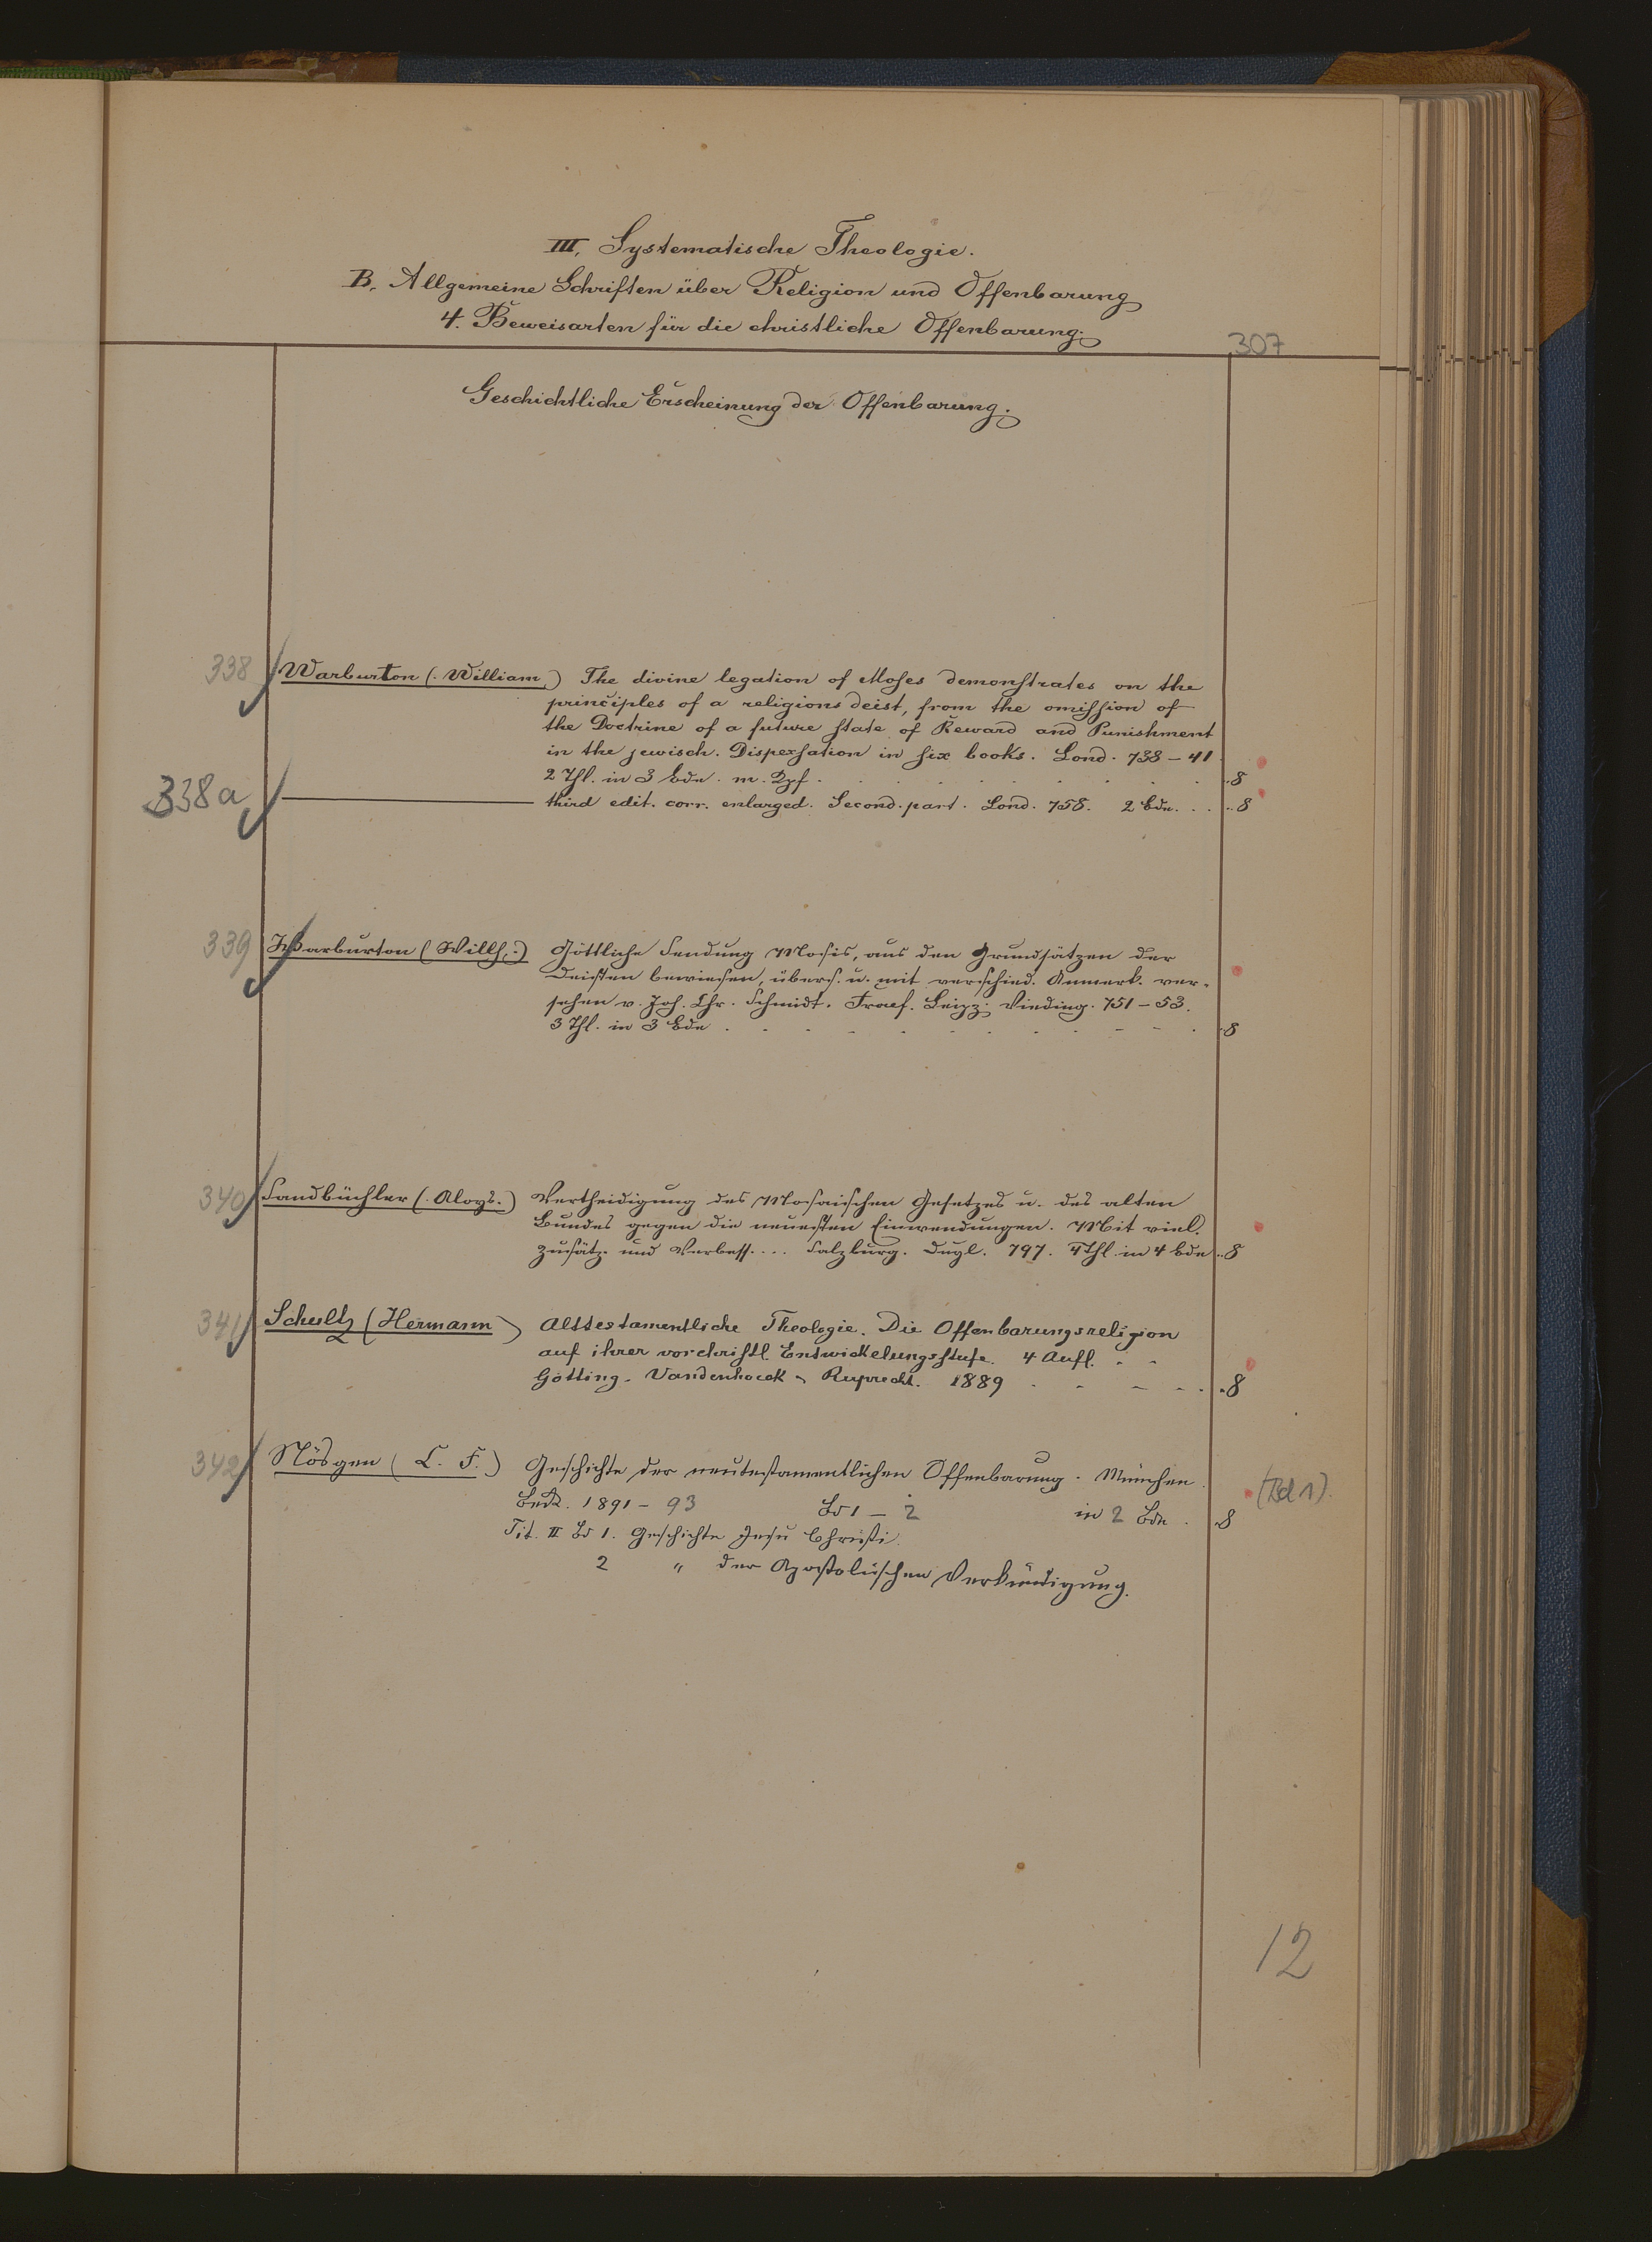 III, Systematische Theologie.
B. Allgemeine Schriften über Religion und Offenbarung
4. Beweisarten für die christliche Offenbarung.
307
Geschichtliche Erscheinung der Offenbarung.
338 Warburton (William) The divine legation of Moses demonstrates on the
principles of a religions deist, from the omission of
the Doctrine of a future state of Reward and Punishment
in the jewisch. Dispensation in six books. Lond. 738–41.
2 Thl. in 3 Bdn. m. Kpf. 8
338a third edit. corr. enlarged. Second. part. Lond. 758. 2 Bdn. 8
339 Warburton (Willh.) Göttliche Sendung Mosis, aus den Grundsätzen der
Deisten bewiesen, übers. u. mit verschied. Anmerk. ver-
sehen v. Joh. Chr. Schmidt. Frcf. Leipz. Vieding. 751–53.
3 Thl. in 3 Bdn 8
340 Sandbüchler (Aloys.) Vertheidigung des Mosaischen Gesetzes u. des alten
Bundes gegen die neuesten Einwendungen. Mit viel.
Zusätz. und Verbess.... Salzburg. Duyl. 797. 4 Thl. in 4 Bdn 8
341 Schultz (Hermann) Alttestamentliche Theologie. Die Offenbarungsreligion
auf ihrer vorchristl. Entwickelungsstufe. 4 Aufl.
Götting. Vandenhoeck u. Ruprecht. 1889 8
342 Nösgen (C. F.) Geschichte der neutestamentlichen Offenbarung. München.
Beck. 1891–93 Bd 1–2 in 2 Bdn. 8 (Bd 1).
Tit. II Bd 1. Geschichte Jesu Christi.
2 " der Apostolischen Verkündigung.
12